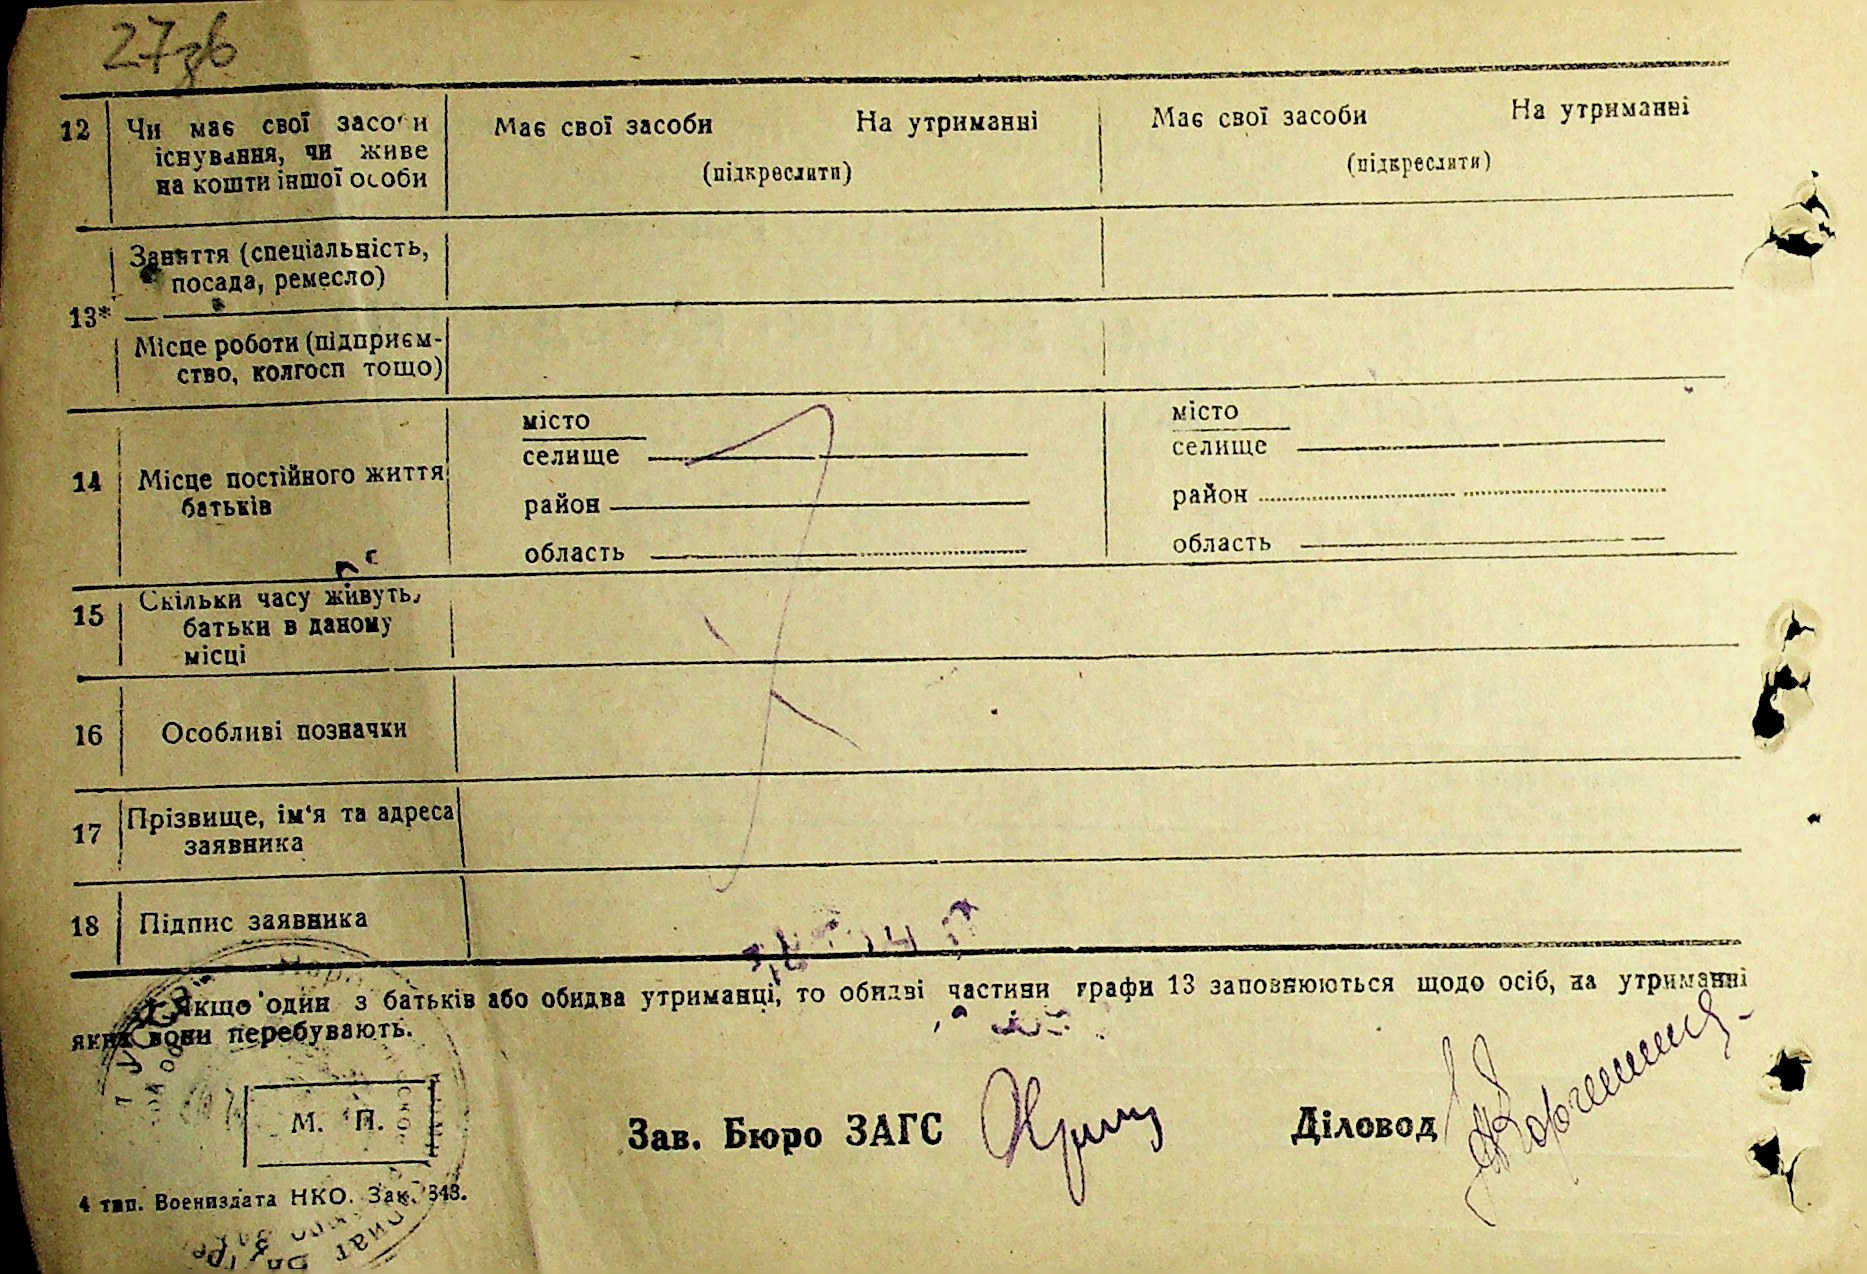 27зв
12 Чи має свої засоби Має свої засоби На утриманні Має свої засоби На утриманні
існування, чи живе (підкреслити) (підкреслити)
на кошти іншої особи
Заняття (спеціальність,
посада, ремесло)
13*
Місце роботи (підприєм-
ство, колгосп тощо)
місто місто
селище селище
14 Місце постійного життя район район
батьків
область область
15 Скільки часу живуть
батьки в даному
місці
16 Особливі позначки
17 Прізвище, ім'я та адреса
заявника
18 Підпис заявника
Якщо один з батьків або обидва утриманці, то обидві частини графи 13 заповнюються щодо осіб, на утриманні
яких вони перебувають.
М. П. Зав. Бюро ЗАГС Діловод
4 тип. Воениздата НКО. Зак. 348.